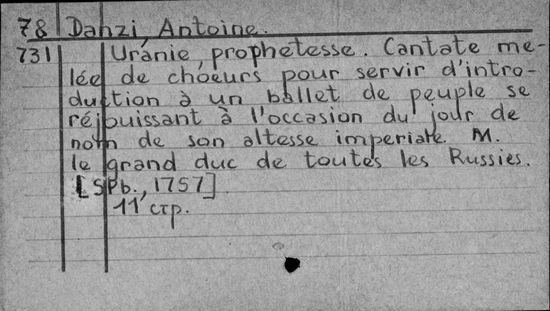 78 Danzi, Antoine.
731 Uránie, prophetesse. Cantate me-
lée de choeurs pour servir d'intro-
duction à un ballet de peuple se
réjouissant à l'occasion du jour de
nom de son altesse imperiale. M.
le grand duc de toutes les Russies.
[SPb., 1757]
11 стр.